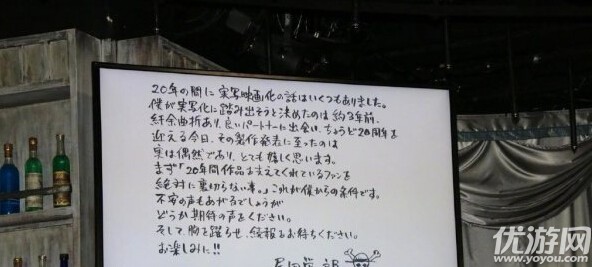 20年の間に実写映画化の話はいくつもありました。
僕が実写化に踏み出そうと決めたのは約3年前、
紆余曲折あり、良いパートナーに出会い、ちょうど20周年を
迎える今日、その製作発表に至ったのは
実は偶然であり、とても嬉しく思います。
まず「20年間作品を支えてくれているファンを
絶対に裏切らない事。」これが僕からの条件です。
不安の声もあがるでしょうが
どうか期待の声をください。
そして胸を躍らせ、続報をお待ちください。
お楽しみに!!
尾田栄一郎
优游网
www.yoyou.com